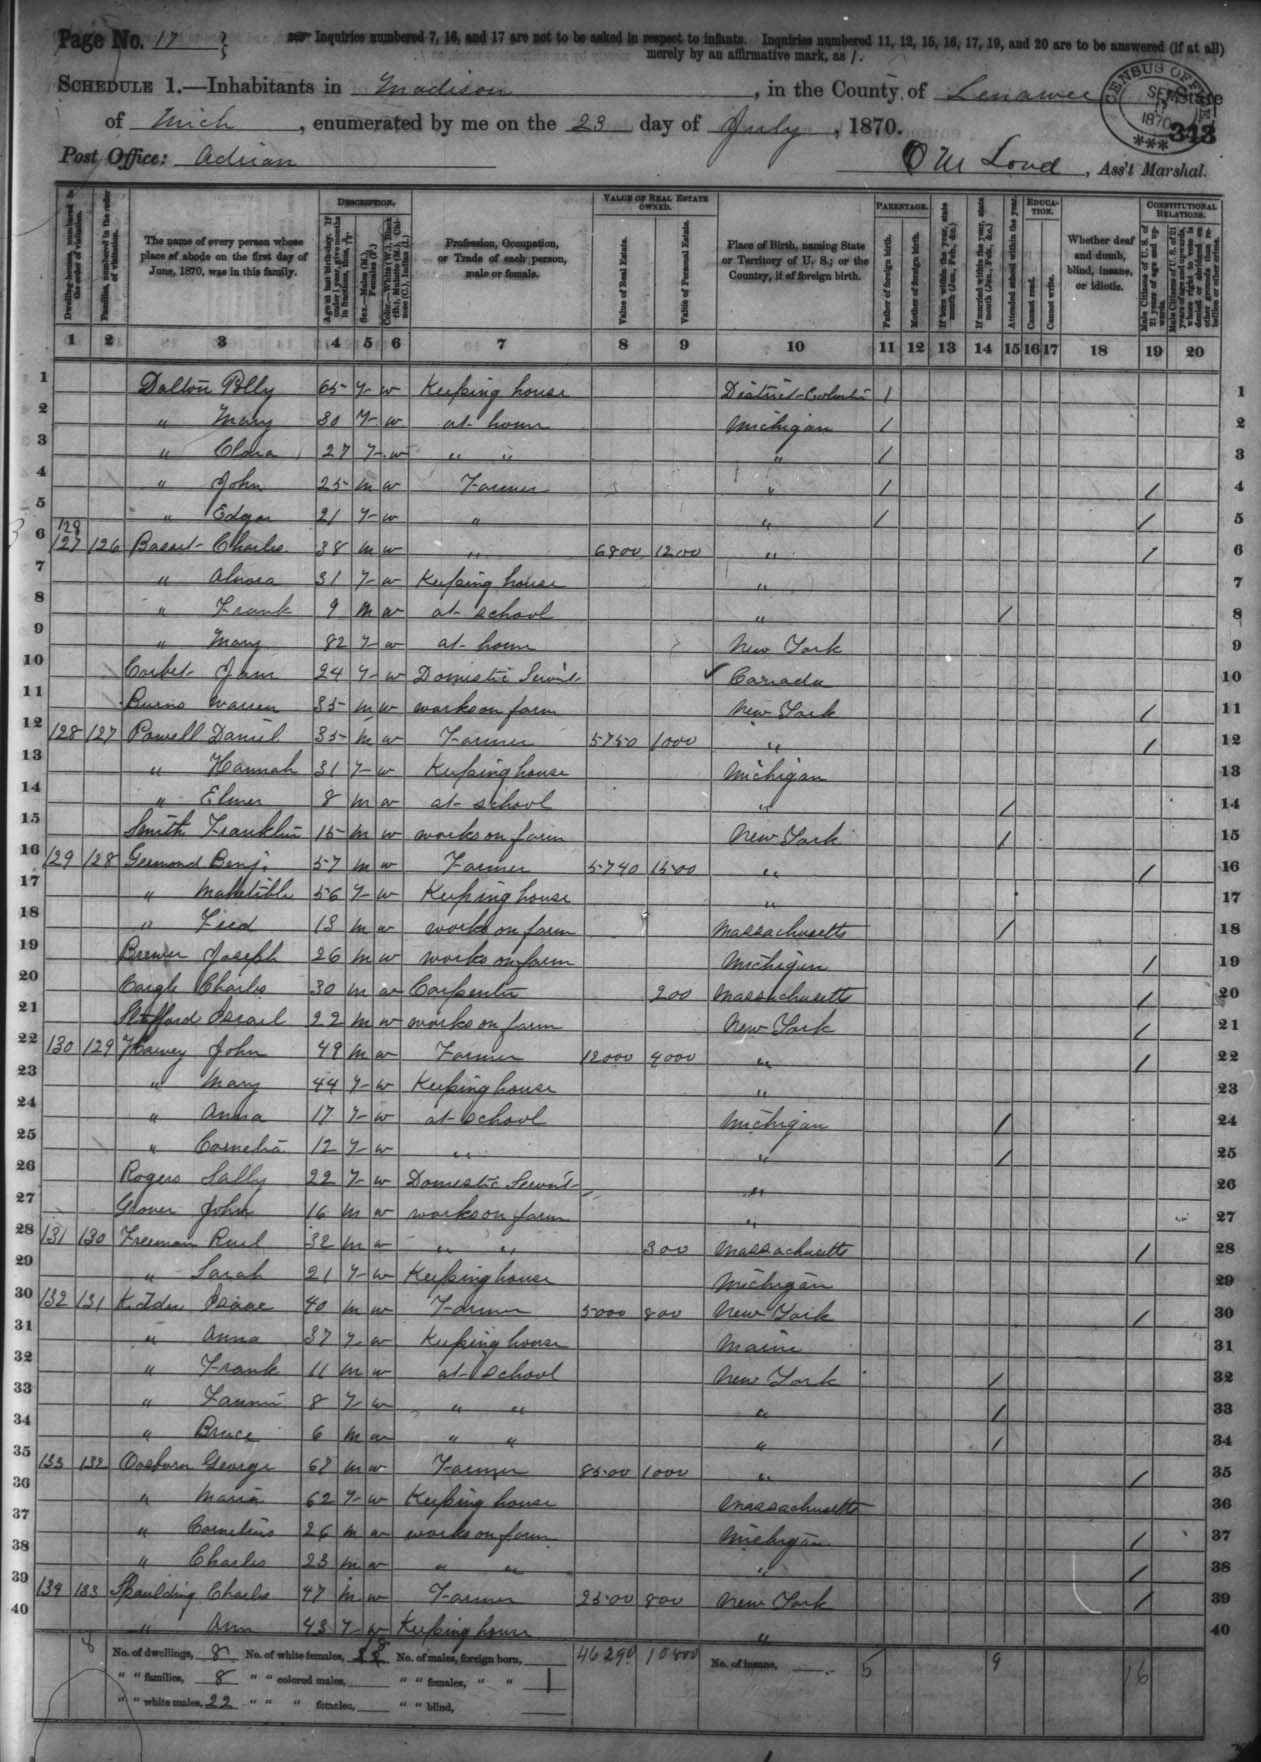 Page No. 17 } Inquiries numbered 7, 16, and 17 are not to be asked in respect to infants. Inquiries numbered 11, 12, 15, 16, 17, 19, and 20 are to be answered (if at all)
merely by an affirmative mark, as /.
SCHEDULE 1.—Inhabitants in Madison, in the County of Lenawee, State
of Mich, enumerated by me on the 23 day of July, 1870.
CENSUS OFFICE 1870 ***
313
Post Office: Adrian O M Loud, Ass't Marshal.
Dwelling-houses, numbered in the order of visitation.
Families, numbered in the order of visitation.
The name of every person whose place of abode on the first day of June, 1870, was in this family.
DESCRIPTION.
Profession, Occupation, or Trade of each person, male or female.
VALUE OF REAL ESTATE OWNED.
Value of Real Estate.
Value of Personal Estate.
Place of Birth, naming State or Territory of U. S.; or the Country, if of foreign birth.
PARENTAGE.
Father of foreign birth.
Mother of foreign birth.
If born within the year, state month (Jan., Feb., &c.)
If married within the year, state month (Jan., Feb., &c.)
Attended school within the year.
EDUCATION.
Cannot read.
Cannot write.
Whether deaf and dumb, blind, insane, or idiotic.
CONSTITUTIONAL RELATIONS.
1 2 3 4 5 6 7 8 9 10 11 12 13 14 15 16 17 18 19 20
1 Dalton Polly 65 F w Keeping house District Columbia / 1
2 " Mary 30 F w at home Michigan / 2
3 " Clara 27 F w " " " / 3
4 " John 25 m w Farmer " / / 4
5 " Edgar 21 F w " " / / 5
128
6 127 126 Basset Charles 38 m w " 6800 1200 " / 6
7 " Alvora 31 F w Keeping house " 7
8 " Frank 9 m w at school " / 8
9 " Mary 82 F w at home New York 9
10 Corbet Jane 24 F w Domestic Servt Canada 10
11 Burns Warren 35 m w works on farm New York / 11
12 128 127 Powell Daniel 35 m w Farmer 5750 1000 " / 12
13 " Hannah 31 F w Keeping house Michigan 13
14 " Elmer 8 m w at school " / 14
15 Smith Franklin 15 m w works on farm New York / 15
16 129 128 Germond Benj. 57 m w Farmer 5740 1500 " / 16
17 " 56 F w Keeping house " 17
18 " Fred 13 m w works on farm Massachusetts / 18
19 Brewer Joseph 26 m w works on farm Michigan / 19
20 Charles 30 m w Carpenter 200 Massachusetts / 20
21 Israel 22 m w works on farm New York / 21
22 130 129 Harvey John 49 m w Farmer 12000 4000 " / 22
23 " Mary 44 F w Keeping house " 23
24 " Anna 17 F w at school Michigan / 24
25 " Cornelia 12 F w " " / 25
26 Rogers Sally 22 F w Domestic Servt " 26
27 Glover John 16 m w works on farm " 27
28 131 130 Freeman Ruel 32 m w " " 300 Massachusetts / 28
29 " Sarah 21 F w Keeping house Michigan 29
30 132 131 Kidder Isaac 40 m w Farmer 5000 800 New York / 30
31 " Anna 37 F w Keeping house Maine 31
32 " Frank 11 m w at school New York / 32
33 " Fannie 8 F w " " " / 33
34 " Bruce 6 m w " " " / 34
35 133 132 Osborn George 67 m w Farmer 8500 1000 " / 35
36 " Maria 62 F w Keeping house Massachusetts 36
37 " Cornelius 26 m w works on farm Michigan / 37
38 " Charles 23 m w " " " / 38
39 134 133 Spaulding Charles 47 m w Farmer 2500 800 New York / 39
40 " Ann 43 F w Keeping house " 40
No. of dwellings, 8 No. of white females, 18 No. of males, foreign born, 46290 10800 No. of insane, 5 9 16
" " families, 8 " " colored males, " " females, " " 1
" " white males, 22 " " " females, " " blind,